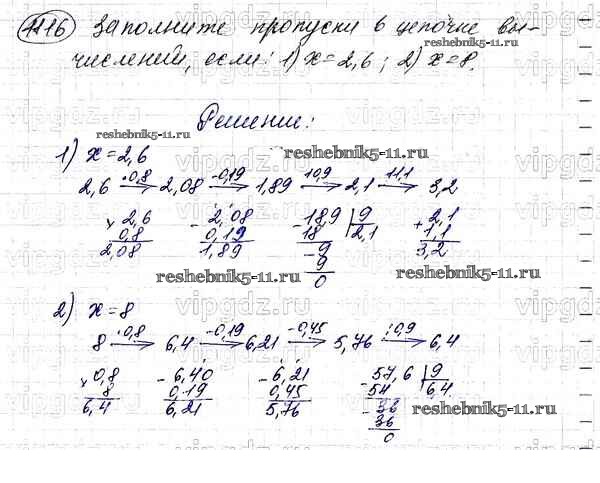 1116 Заполните пропуски в цепочке вы-
числений, если: 1) x = 2,6 ; 2) x = 8.
reshebnik5-11.ru
Решение:
reshebnik5-11.ru
1) x = 2,6
reshebnik5-11.ru
2,6 ·0,8→ 2,08 -0,19→ 1,89 :0,9→ 2,1 +1,1→ 3,2
× 2,6 - 2,08 - 18,9 | 9 + 2,1
0,8 0,19 18 2,1 1,1
2,08 1,89 - 9 3,2
9
0
reshebnik5-11.ru
reshebnik5-11.ru
2) x = 8
8 ·0,8→ 6,4 -0,19→ 6,21 -0,45→ 5,76 :0,9→ 6,4
× 0,8 - 6,40 - 6,21 - 57,6 | 9
8 0,19 0,45 54 6,4
6,4 6,21 5,76 - 36
36
0
reshebnik5-11.ru
vipgdz.ru